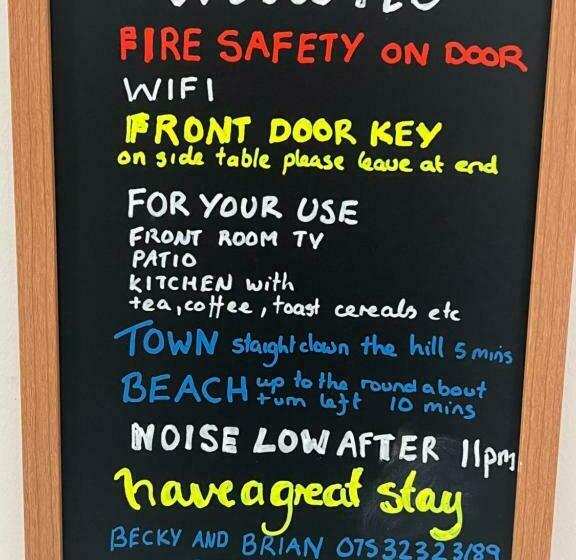 FIRE SAFETY ON DOOR
WIFI
FRONT DOOR KEY
on side table please leave at end
FOR YOUR USE
FRONT ROOM TV
PATIO
KITCHEN with
tea, coffee, toast cereals etc
TOWN staight down the hill 5 mins
BEACH up to the round about
turn left 10 mins
NOISE LOW AFTER 11pm
have a great stay
BECKY AND BRIAN 07532323189